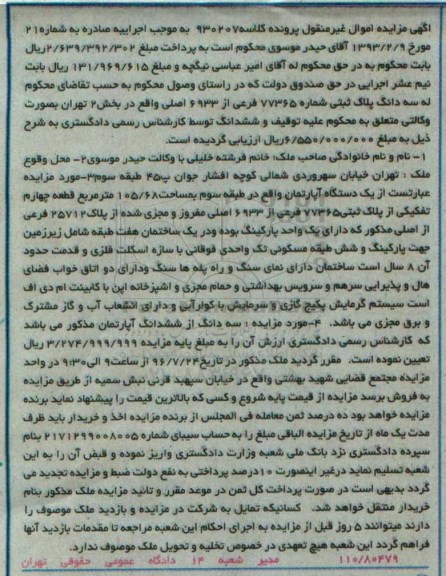 آگهی مزایده اموال غیرمنقول پرونده کلاسه ۹۳۰۲۰۷ به موجب اجراییه صادره به شماره ۲۱
مورخ ۱۳۹۳/۲/۹ آقای حیدر موسوی محکوم است به پرداخت مبلغ ۲/۶۳۹/۳۹۲/۳۰۲ ریال
بابت محکوم به در حق محکوم له آقای امیر عباسی نیگچه و مبلغ ۱۳۱/۹۶۹/۶۱۵ ریال بابت
نیم عشر اجرایی در حق صندوق دولت که در راستای وصول محکوم به حسب تقاضای محکوم
له سه دانگ پلاک ثبتی شماره ۷۷۳۶۵ فرعی از ۶۹۳۳ اصلی واقع در بخش ۲ تهران بصورت
وکالتی متعلق به محکوم علیه توقیف و ششدانگ توسط کارشناس رسمی دادگستری به شرح
ذیل به مبلغ ۶/۵۵۰/۰۰۰/۰۰۰ ریال ارزیابی گردیده است.
۱- نام و نام خانوادگی صاحب ملک: خانم فرشته خلیلی با وکالت حیدر موسوی ۲- محل وقوع
ملک : تهران خیابان سهروردی شمالی کوچه افشار جوان پ ۴۵ طبقه سوم ۳- مورد مزایده
عبارتست از یک دستگاه آپارتمان واقع در طبقه سوم بمساحت ۱۰۵/۶۸ مترمربع قطعه چهارم
تفکیکی از پلاک ثبتی ۷۷۳۶۵ فرعی از ۶۹۳۳ اصلی مفروز و مجزی شده از پلاک ۲۵۷۱۲ فرعی
از اصلی مذکور که دارای یک واحد پارکینگ بوده ودر یک ساختمان هفت طبقه شامل زیرزمین
جهت پارکینگ و شش طبقه مسکونی تک واحدی فوقانی با سازه اسکلت فلزی و قدمت حدود
آن ۸ سال است ساختمان دارای نمای سنگ و راه پله ها سنگ ودارای دو اتاق خواب فضای
هال و پذیرایی سرهم و سرویس بهداشتی و حمام مجزی و آشپزخانه اپن با کابینت ام دی اف
است سیستم گرمایش پکیج گازی و سرمایش با کولرآبی و دارای انشعاب آب و گاز مشترک
و برق مجزی می باشد. ۴-مورد مزایده : سه دانگ از ششدانگ آپارتمان مذکور می باشد
که کارشناس رسمی دادگستری ارزش آن را به مبلغ پایه مزایده ۳/۲۷۴/۹۹۹/۹۹۹ ریال
تعیین نموده است. مقرر گردید ملک مذکور در تاریخ ۹۶/۷/۲۴ از ساعت ۹ الی ۹:۳۰ در واحد
مزایده مجتمع قضایی شهید بهشتی واقع در خیابان سپهبد قرنی نبش سمیه از طریق مزایده
به فروش برسد مزایده از قیمت پایه شروع و کسی که بالاترین قیمت را پیشنهاد نماید برنده
مزایده خواهد بود ده درصد ثمن معامله فی المجلس از برنده مزایده اخذ و خریدار باید ظرف
مدت یک ماه از تاریخ مزایده الباقی مبلغ را به حساب سیبای شماره ۲۱۷۱۲۹۹۰۰۸۰۰۵ بنام
سپرده دادگستری نزد بانک ملی شعبه وزارت دادگستری واریز نموده و قبض آن را به این
شعبه تسلیم نماید درغیر اینصورت ۱۰درصد پرداختی به نفع دولت ضبط و مزایده تجدید می
گردد بدیهی است در صورت پرداخت کل ثمن در موعد مقرر و تائید مزایده ملک مذکور بنام
خریدار منتقل خواهد شد. کسانیکه تمایل به شرکت در مزایده و بازدید ملک موصوف را
دارند میتوانند ۵ روز قبل از مزایده به اجرای احکام این شعبه مراجعه تا مقدمات بازدید آنها
فراهم گردد این شعبه هیچ تعهدی در خصوص تخلیه و تحویل ملک موصوف ندارد.
۱۱۰/۸۰۴۷۹ مدیر شعبه ۱۴ دادگاه عمومی حقوقی تهران